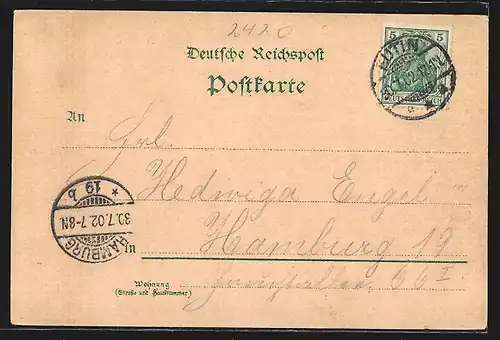 2420
Deutsche Reichspost
Postkarte
5 5
EUTIN
An
Frl.
Hedwiga Engel
* 19 b
30.7.02.7-8N.
HAMBURG
in Hamburg 19
66 I
Wohnung
(Straße und Hausnummer)